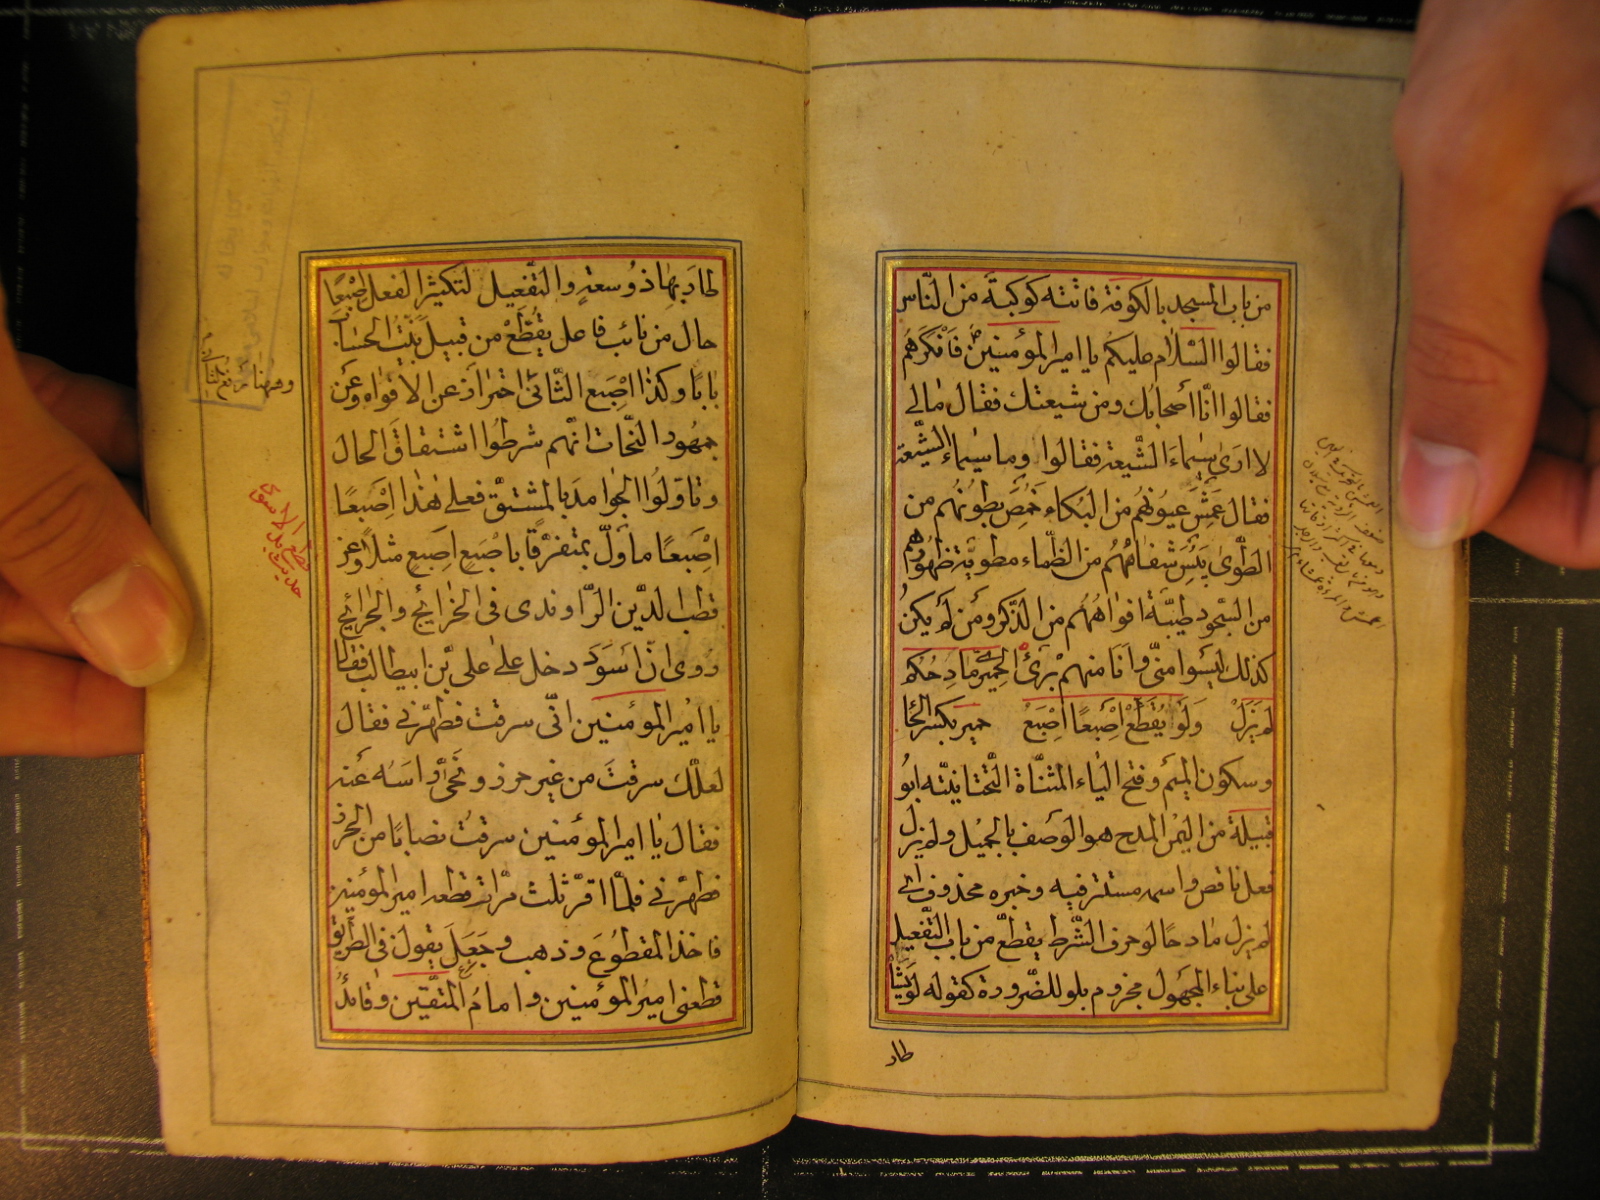 من باب المسجد بالكوفة فاتته كوكبة من الناس
فقالوا السلام عليكم يا امير المؤمنين فانكرهم
فقالوا انّا أصحابك ومن شيعتك فقال مالي
لا ارى سيماء الشّيعة فقالوا وما سيماء الشيّعة
فقال عمش عيونهم من البكاء خمص بطونهم من
الطّوى يبس شفاههم من الظماء مطوية ظهورهم
من السّجود طيّبة افواههم من الذّكر ومن لم يكن
كذلك ليسوا منّي وانا منهم برئ الحميريّ مادحكم
لم يزل ولو يقطع اصبعا اصبع حمير بكسر الحا
وسكون الميم وفتح الياء المثنّاة التّحتانيّته ابو
قبيلة من اليمن المدح هو الوصف بالجميل ولم يزل
فعل ناقص واسمه مستتر فيه وخبره محذوف اى
لم يزل مادحا لو حرف الشّرط يقطع من باب التّفعيل
على بناء المجهول مجزوم بلو للضّرورة كقوله لو يشأ
طار
طار بها ذو سعته والتّفعيل لتكثير الفعل اصبعا
حال من نائب فاعل يقطّع من قبيل بيّنت الحساب
بابا وكذا اصبع الثّانى احتراز عن الافواه وعن
جمهور النّحات انّهم شرطوا اشتقاق الحال
وتاوّلوا الجوامد بالمشتقّ فعلى هذا اصبعا
اصبعا مأوّل بمتفرّقا باصبع اصبع مثلا وعن
قطب الدّين الرّاوندى فى الخرائج والجرائح
روى انّ اسود دخل على علي بن ابيطالب فقال
يا امير المؤمنين انّى سرقت فطهّرني فقال
لعلّك سرقت من غير حرز ونحى رأسه عنه
فقال يا امير المؤمنين سرقت نصابا من الحرز
فطهّرني فلمّا اقرّ ثلث مرّات قطعه امير المؤمنين
فاخذ المقطوع وذهب وجعل يقول فى الطريق
قطعنى امير المؤمنين وامام المتّقين وقائد